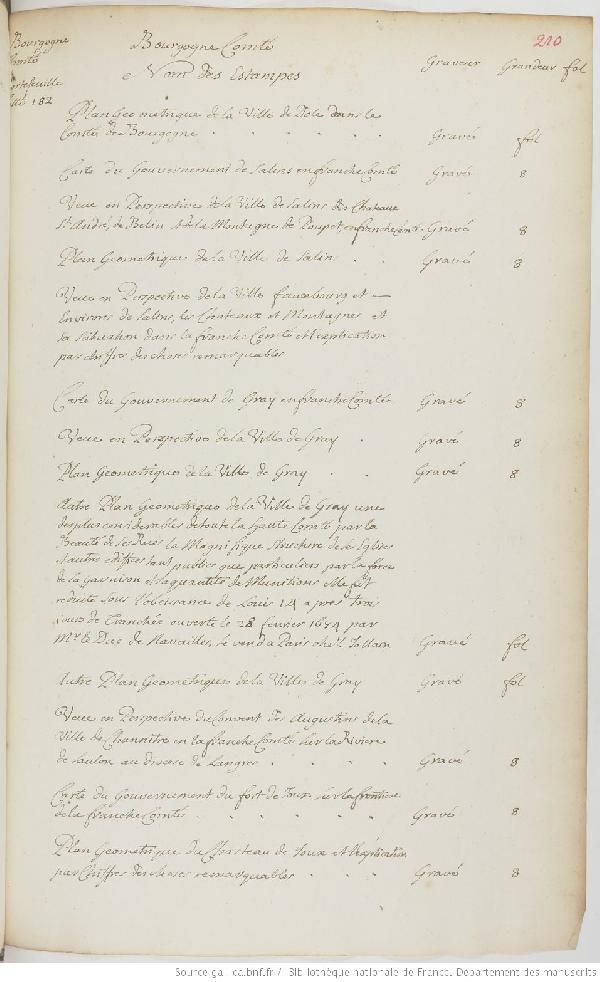 210
Bourgogne
Comté
Portefeuille
182
Bourgogne Comté
Nom des Estampes
Graveur Grandeur fol
Plan Geometrique de la Ville de Dole dans le
Comté de Bourgogne Gravé fol
Carte du Gouvernement de Salins en franche Comté Gravé 8
Veue en Perspective de la Ville de Salins des Chateaux
St André, de Belin et de la Montagne de Poupet, en franche Comté Gravé 8
Plan Geometrique de la Ville de Salins Gravé 8
Veue en Perspective de la Ville fauxbourg et
Environs de Salins, les Chateaux et Montagnes et
sa Situation dans la franche Comté et l'explication
par chiffre des choses remarquables
Carte du Gouvernement de Gray en franche Comté Gravé 8
Veue en Perspective de la Ville de Gray Gravé 8
Plan Geometrique de la Ville de Gray Gravé 8
Autre Plan Geometrique de la Ville de Gray une
des plus considerables de toute la Haute Comté par la
Beauté de ses Rues la Magnifique Structure de ses Eglises
et autres edifices tant publics que particuliers par la force
de la Garnison et la quantité de Munitions elle fut
reduite sous l'obeissance de Louis 14 apres trois
jours de Tranchée ouverte le 28 fevrier 1674 par
Mr le Duc de Navailles, se vend a Paris chez Jollain Gravé fol
Autre Plan Geometrique de la Ville de Gray Gravé fol
Veue en Perspective du Couvent des Augustins de la
Ville de Channitte en la franche Comté sur la Riviere
de Saulon au diocese de Langres Gravé 8
Carte du Gouvernement du fort de Joux sur la frontiere
de la franche Comté Gravé 8
Plan Geometrique du Chasteau de Joux et l'explication
par Chiffres des choses remarquables Gravé 8
Source gallica.bnf.fr / Bibliothèque nationale de France. Département des manuscrits